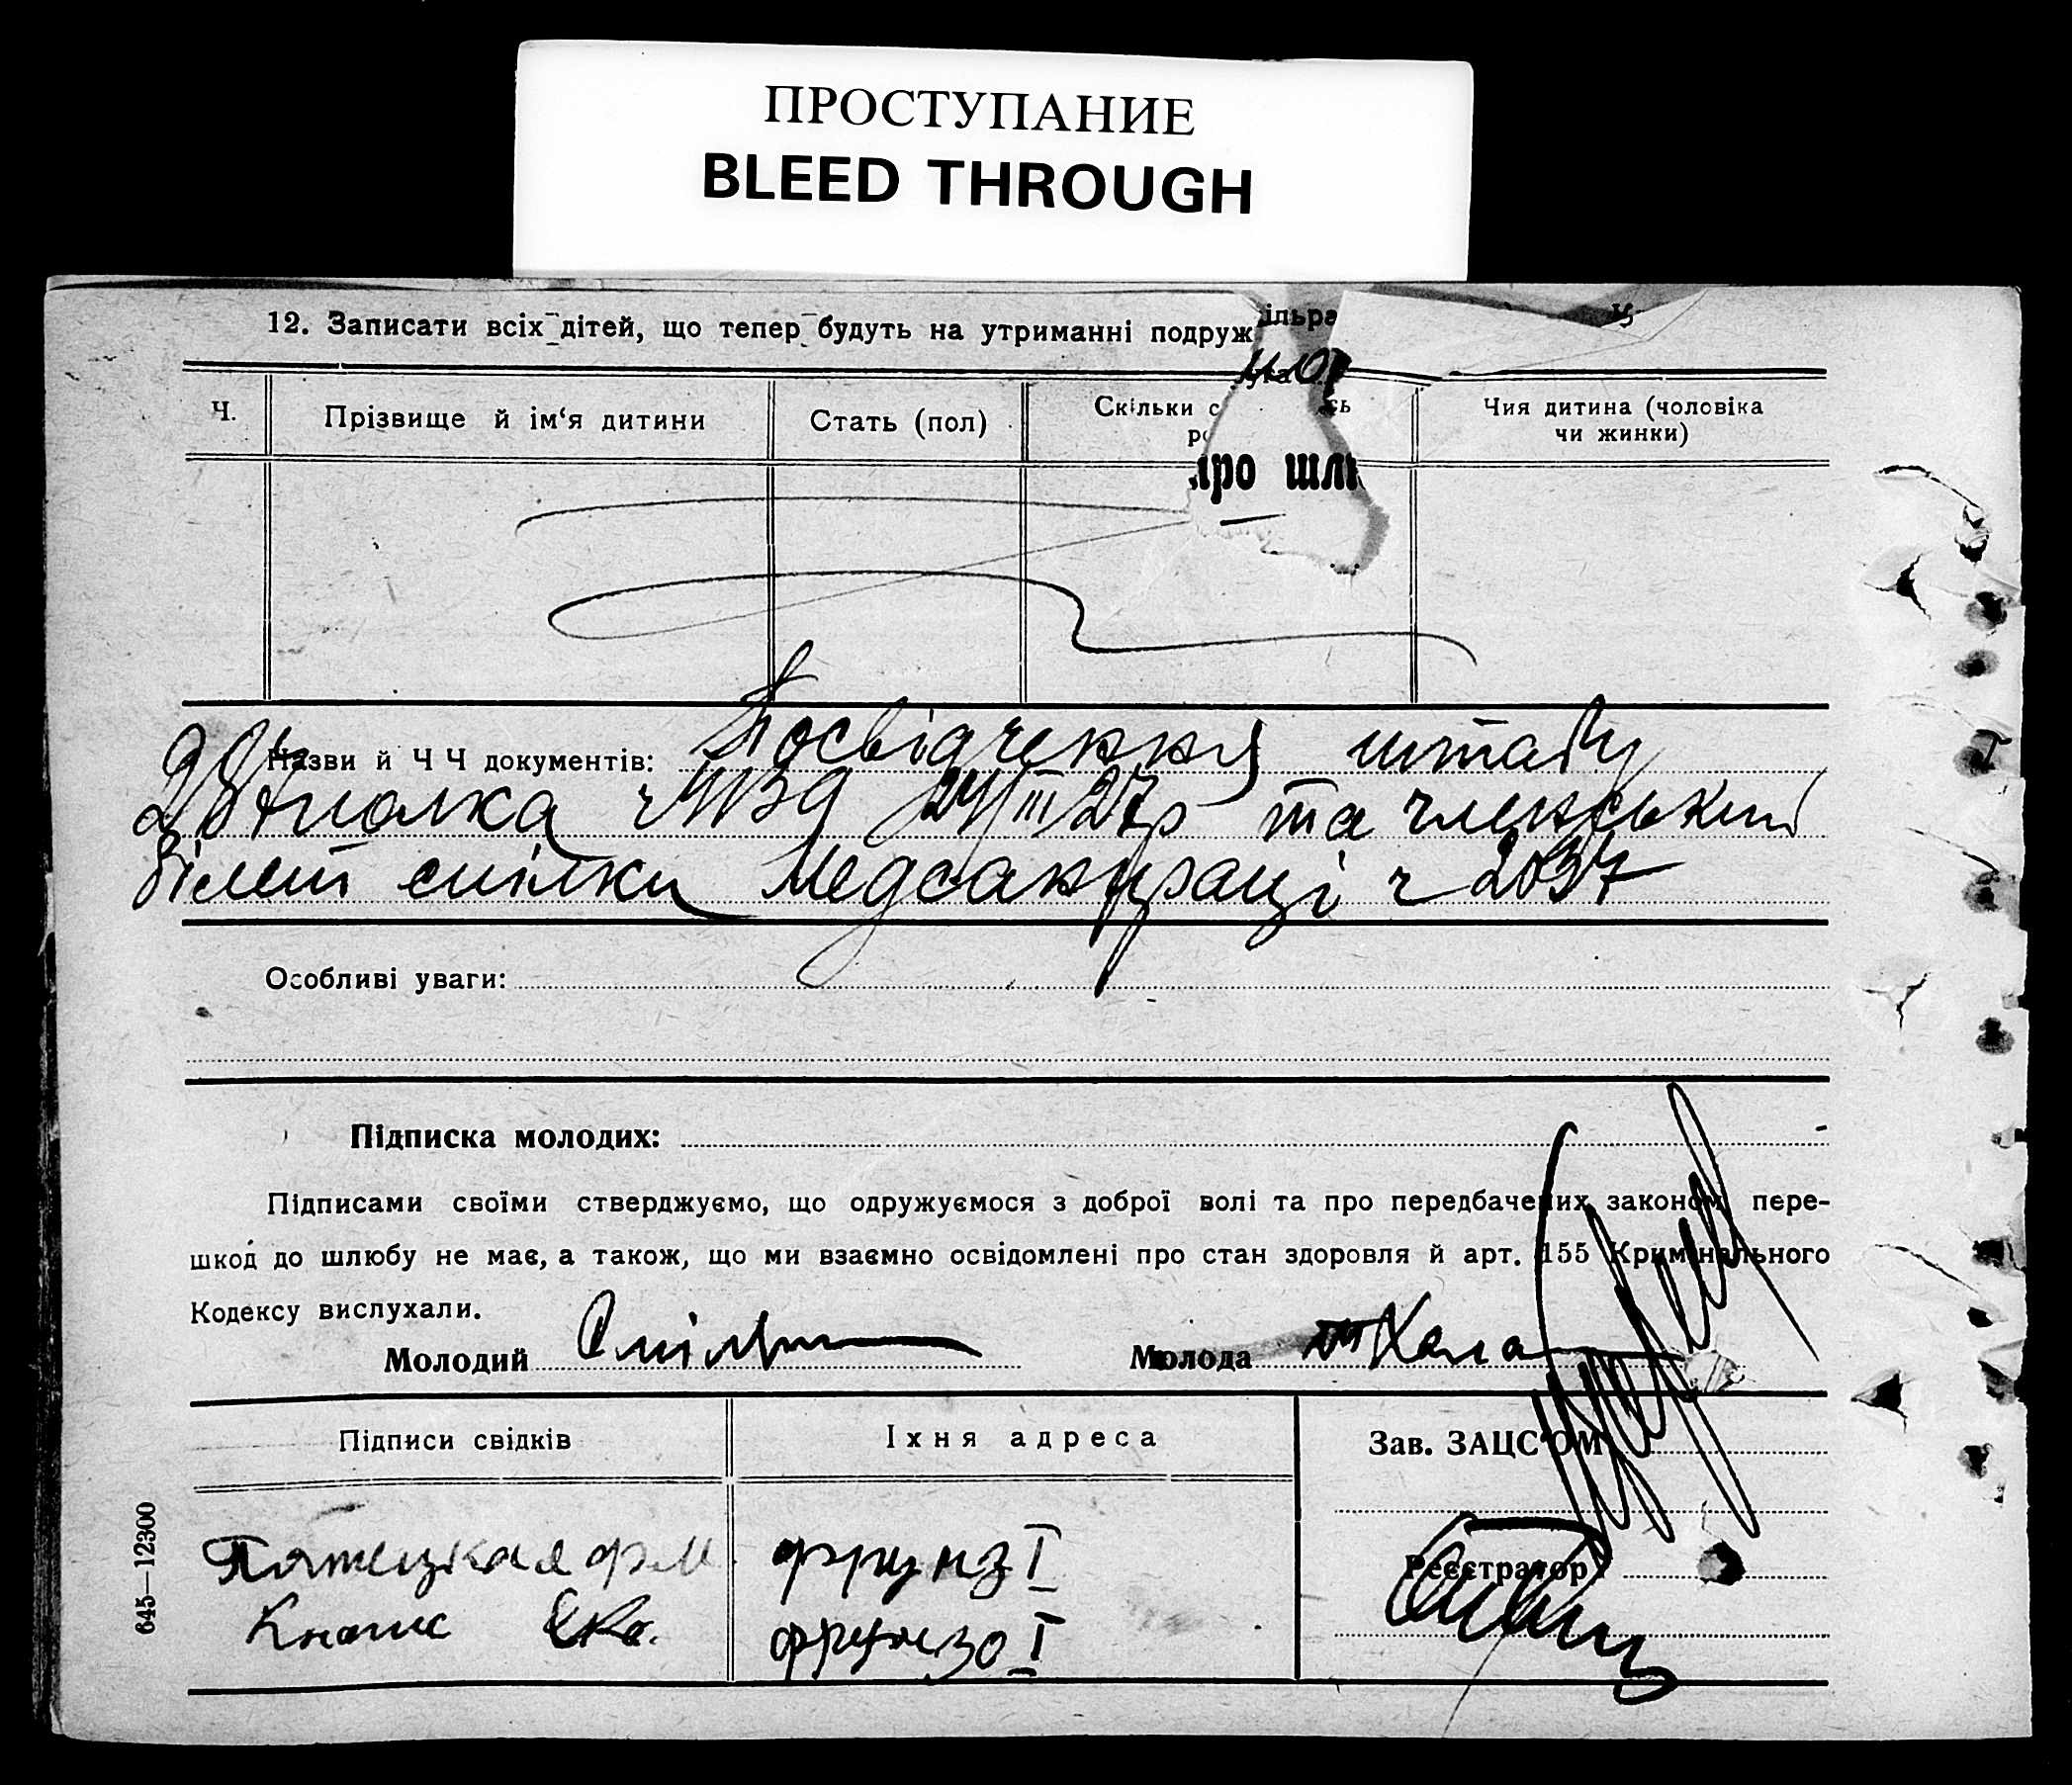 ПРОСТУПАНИЕ
BLEED THROUGH
12. Записати всіх дітей, що тепер будуть на утриманні подруж
ільра
Ч.
Прізвище й ім‘я дитини
Стать (пол)
Скільки
Чия дитина (чоловіка
чи жинки)
про шлю
Назви й Ч Ч документів: Посвідчення штабу
полка ч 24/III 27р та членський
білет спілки Медсанпраці ч 2037
Особливі уваги:
Підписка молодих:
Підписами своїми стверджуємо, що одружуємося з доброї волі та про передбачених законом пере-
шкод до шлюбу не має, а також, що ми взаємно освідомлені про стан здоровля й арт. 155 Кримінального
Кодексу вислухали.
Молодий
Молода
Підписи свідків
Їхня адреса
Зав. ЗАЦС‘ОМ
Реєстратор
фрунз I
фрунзе I
645—12300